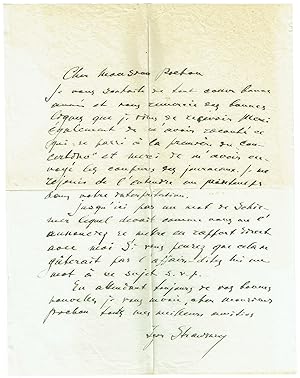 Cher Monsieur Pochon
Je vous souhaite de tout coeur bonne
année et vous remercie des bonnes
lignes que je viens de recevoir. Merci
également de m'avoir raconté ce
qui se passa à la première du Con-
certino et merci de m'avoir en-
voyé les coupures des journaux. Je me
réjouis de l'entendre au printemps
dans votre interprétation.
Jusqu'ici pas un mot de
lequel devait comme vous me l'
annonciez se mettre en rapport direct
avec moi. Si vous pensez que cela ne
gâterait pas l'affaire dites lui un
mot à ce sujet s.v.p.
En attendant toujours de vos bonnes
nouvelles je vous envoie, cher Monsieur
Pochon toutes mes meilleures amitiés
Igor Strawinsky